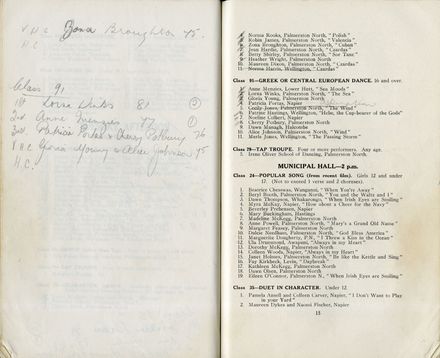 V H C Zona Broughton 75.
H.C.
Class 91
1st Lorna Winks 81
2nd Anne Menzies 77
3rd Patricia Portas & Cherry Potbury 76
V H C Gloria Young & Alice Johnson 75
H.C.
Norma Rooks, Palmerston North, "Polish"
Robin James, Palmerston North, "Valentia"
Zona Broughton, Palmerston North, "Cuban"
Jean Hardie, Palmerston North, "Czardas"
Betty Shirley, Palmerston North, "Sor Tanz"
Heather Wright, Palmerston North
Maureen Dixon, Palmerston North, "Czardas"
Norma Harris, Wellington, "Czardas"
Class 91—GREEK OR CENTRAL EUROPEAN DANCE. 16 and over.
1. Anne Menzies, Lower Hutt, "Sea Moods"
2. Lorna Winks, Palmerston North, "The Sea"
3. Gloria Young, Palmerston North
4. Patricia Portas, Napier
5. Cecily Jones, Palmerston North, "The Wind"
6. Patricia Hastings, Wellington, "Hebe, the Cup-bearer of the Gods"
7. Noeline Collett, Napier
8. Cherry Potbury, Palmerston North
9. Dawn Managh, Halcombe
10. Alice Johnson, Palmerston North, "Wind"
11. Marie Jones, Wellington, "The Passing Storm"
Class 79—TAP TROUPE. Four or more performers. Any age.
1. Irene Oliver School of Dancing, Palmerston North
MUNICIPAL HALL—2 p.m.
Class 24—POPULAR SONG (from recent film). Girls 12 and under
17. (Not to exceed 1 verse and 2 choruses).
1. Beatrice Cheeswas, Wanganui, "When You're Away"
2. Beryl Booth, Palmerston North, "You and the Waltz and I"
3. Dawn Thompson, Whakarongo, "When Irish Eyes are Smiling"
4. Myra McKay, Napier, "How about a Cheer for the Navy"
5. Beverley Prebensen, Napier
6. Mary Buckingham, Hastings
7. Madeline McKegg, Palmerston North
8. Anne Powell, Palmerston North, "Mary's a Grand Old Name"
9. Margaret Feasey, Palmerston North
10. Dulcie Needham, Palmerston North, "God Bless America"
11. Marguerite Dougherty, P.N., "I Threw a Kiss in the Ocean"
12. Ula Drummond, Awapuni, "Always in my Heart"
13. Dorothy McKegg, Palmerston North
14. Colleen Woods, Napier, "Always in my Heart"
15. Janet Holmes, Palmerston North, "Be like the Kettle and Sing"
16. Fay Kirkbeck, Levin, "Daybreak"
17. Kathleen McKegg, Palmerston North
18. Dawn Olsen, Palmerston North
19. Eileen O'Connor, Palmerston N., "When Irish Eyes are Smiling"
Class 35—DUET IN CHARACTER. Under 12
1. Pamela Ansell and Colleen Carver, Napier, "I Don't Want to Play
in your Yard"
2. Maureen Dykes and Naomi Fischer, Napier
15